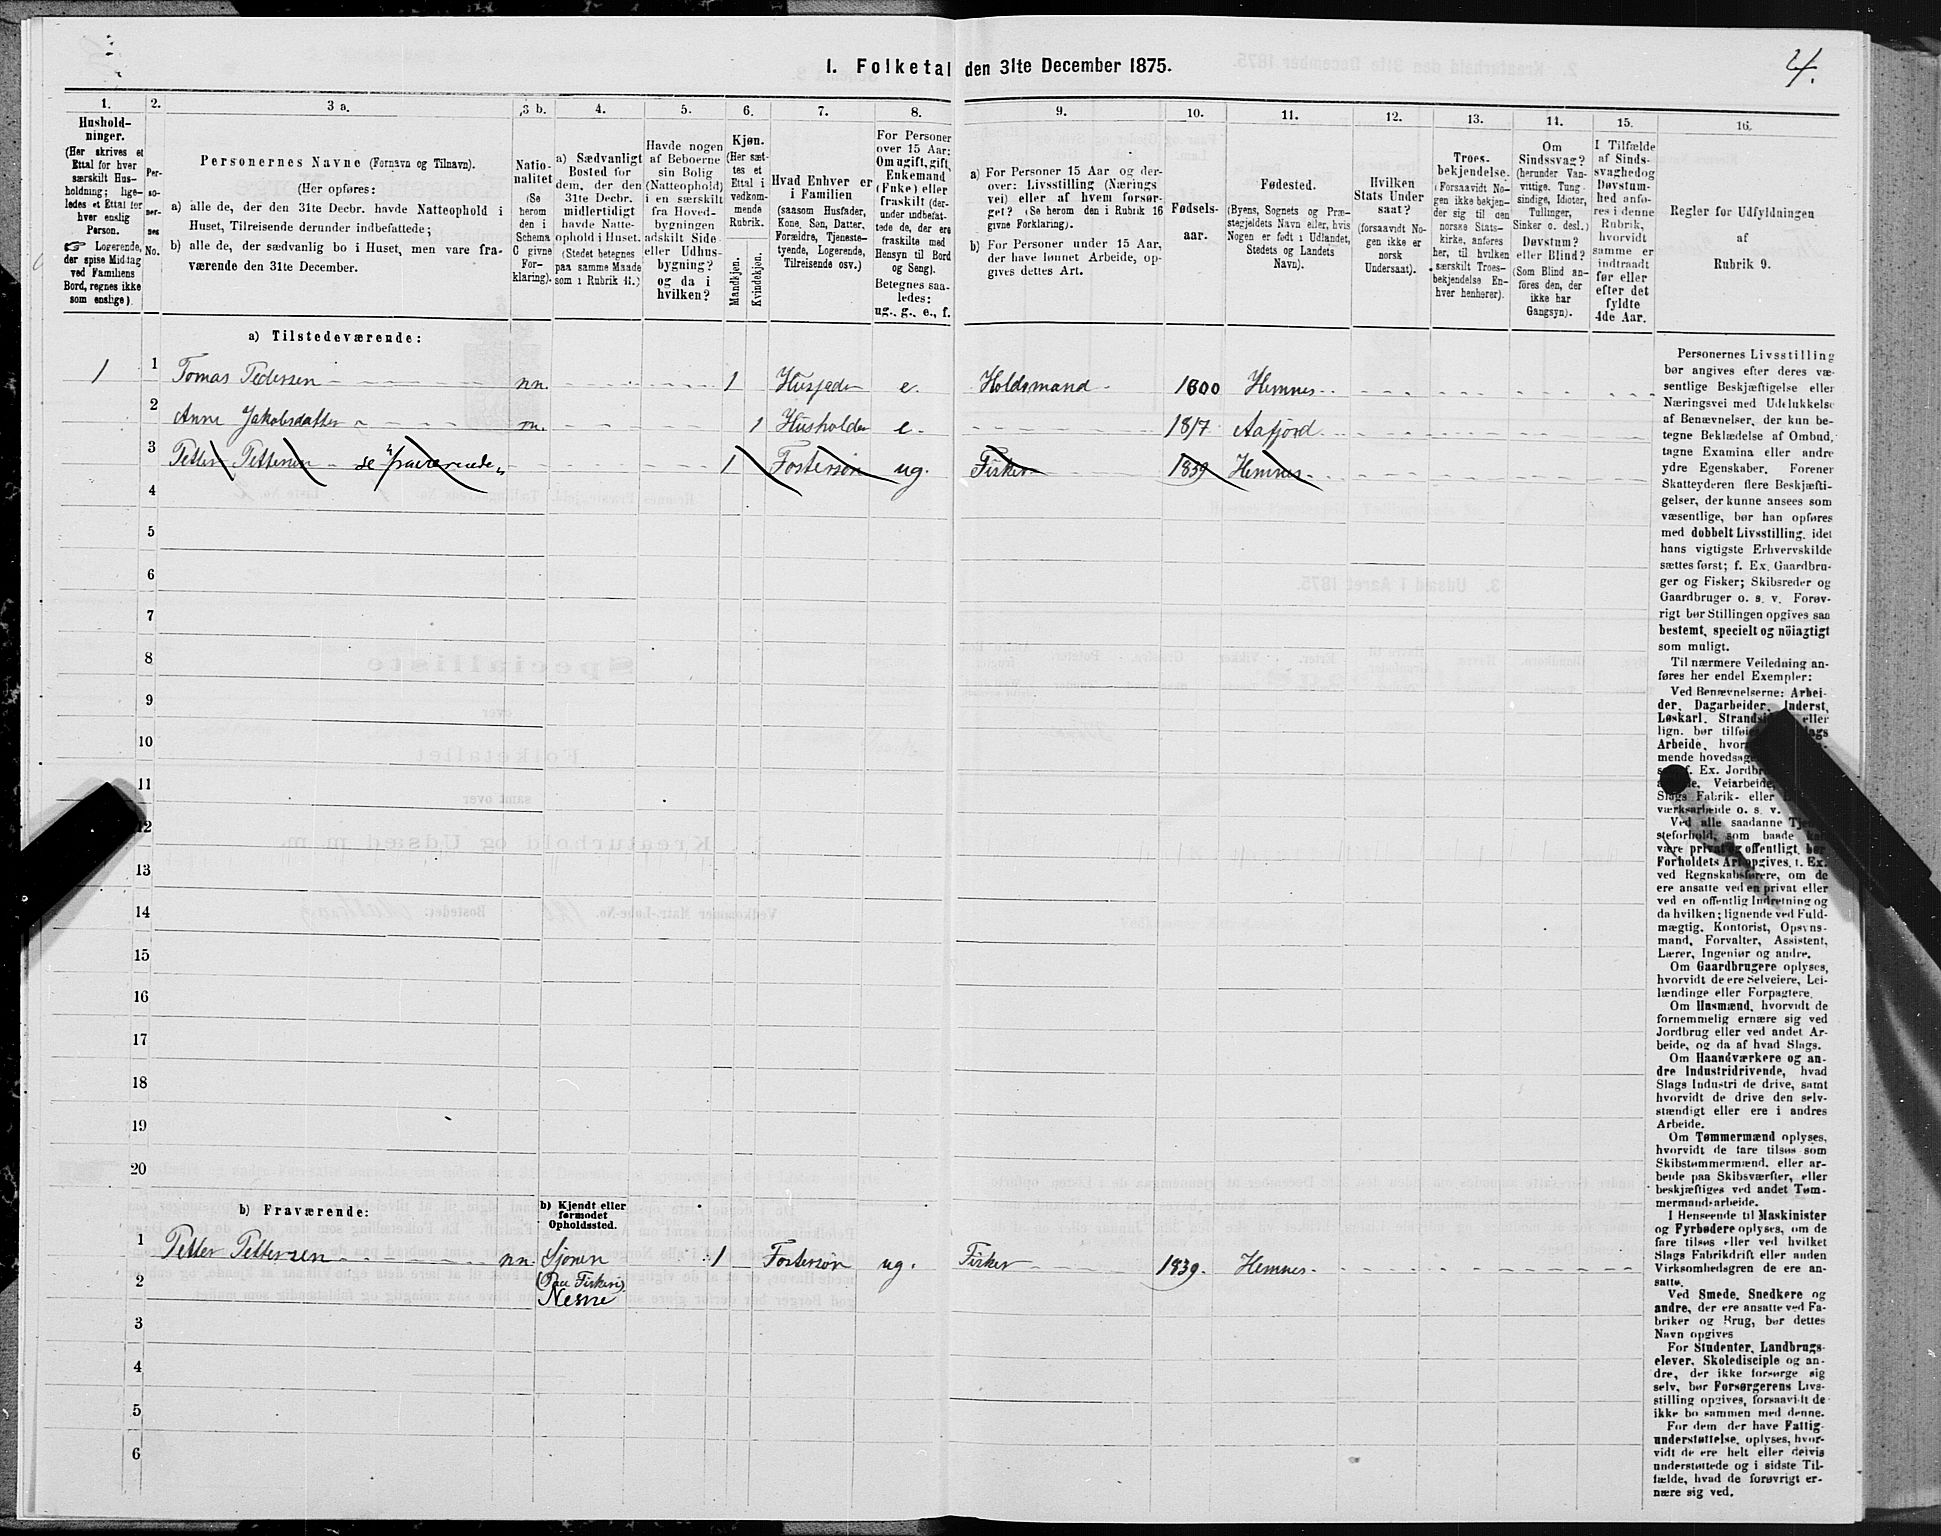 4.
I. Folketal den 31te December 1875.
1.
Hushold-
ninger.
(Her skrives et
Ettal for hver
særskilt Hus-
holdning; lige-
ledes et Ettal for
hver enslig
Person.
☞ Logerende,
der spise Middag
ved Familiens
Bord, regnes ikke
som enslige).
2.
Per-
so-
ner-
nes
No.
3 a.
Personernes Navne (Fornavn og Tilnavn).
(Her opføres:
a) alle de, der den 31te Decbr. havde Natteophold i
Huset, Tilreisende derunder indbefattede;
b) alle de, der sædvanlig bo i Huset, men vare fra-
værende den 31te December.
3 b.
Natio-
nalitet
(Se
herom
den i
Schema
C givne
For-
klaring).
4.
a) Sædvanligt
Bosted for
dem, der den
31te Decbr.
midlertidigt
havde Natte-
ophold i Huset.
(Stedet betegnes
paa samme Maade
som i Rubrik 11.)
5.
Havde nogen
af Beboerne
sin Bolig
(Natteophold)
i en særskilt
fra Hoved-
bygningen
adskilt Side-
eller Udhus-
bygning?
og da i
hvilken?
6.
Kjøn.
(Her sæt-
tes et
Ettal i
vedkom-
mende
Rubrik.
Mandkjøn.
Kvindekjøn.
7.
Hvad Enhver er
i Familien
(saasom Husfader,
Kone, Søn, Datter,
Forældre, Tjeneste-
tyende, Logerende,
Tilreisende osv.)
8.
For Personer
over 15 Aar:
Om ugift, gift,
Enkemand
(Enke) eller
fraskilt (der-
under indbefat-
tede de, der ere
fraskilte med
Hensyn til Bord
og Seng).
Betegnes saa-
ledes:
ug., g., e., f.
9.
a) For Personer 15 Aar og der-
over: Livsstilling (Nærings
vei) eller af hvem forsør-
get? (Se herom den i Rubrik 16
givne Forklaring).
b) For Personer under 15 Aar,
der have lønnet Arbeide, op-
gives dettes Art.
10.
Fødsels-
aar.
11.
Fødested.
(Byens, Sognets og Præ-
stegjeldets Navn eller, hvis
Nogen er født i Udlandet,
Stedets og Landets
Navn).
12.
Hvilken
Stats Under
saat?
(forsaavidt No-
gen ikke er
norsk
Undersaat).
13.
Troes-
bekjendelse.
(Forsaavidt No-
gen ikke bekjen-
der sig til den
norske Stats-
kirke, anføres
her, til hvilken
særskilt Troes-
bekjendelse En-
hver henhører).
14.
Om
Sindssvag?
(herunder Van-
vittige, Tung-
sindige, Idioter,
Tullinger,
Sinker o. desl.)
Døvstum?
eller Blind?
(Som Blind an-
føres den, der
ikke har
Gangsyn).
15.
I Tilfælde
af Sinds-
svaghed og
Døvstum-
hed anfø-
res i denne
Rubrik,
hvorvidt
samme er
indtraadt
før eller
efter det
fyldte
4de Aar.
16.
Regler for Udfyldningen
af
Rubrik 9.
a) Tilstedeværende:
1 1 Tomas Pedersen nn. 1 Husfader e. Holdsmand 1800 Hemnes
2 Anne Jakobsdatter n. 1 Husholder e. 1817 Aafjord
3 Petter Pettersen se fraværende 1 Fostersøn ug. Fisker 1839 Hemnes
4
5
6
7
8
9
10
11
12
13
14
15
16
17
18
19
20
b) Fraværende:
b) Kjendt eller
formodet
Opholdssted.
1 Petter Pettersen nn. Sjonen 1 Fostersøn ug. Fisker 1839. Hemnes
2 (Paa Fiskeri)
Nesne
3
4
5
6
Personernes Livsstilling
bør angives efter deres væ-
sentlige Beskjæftigelse eller
Næringsvei med Udelukkelse
af Benævnelser, der kun be-
tegne Beklædelse af Ombud,
tagne Examina eller andre
ydre Egenskaber. Forener
Skatteyderen flere Beskjæfti-
gelser, der kunne ansees som
væsentlige, bør han opføres
med dobbelt Livsstilling, idet
hans vigtigste Erhvervskilde
sættes først; f. Ex. Gaardbru-
ger og Fisker; Skibsreder og
Gaardbruger o. s. v. Forøv-
rigt bør Stillingen opgives saa
bestemt, specielt og nöiagtigt
som muligt.
Til nærmere Veiledning an-
føres her endel Exempler:
Ved Benævnelserne: Arbei-
der, Dagarbeider, Inderst,
Løskarl, eller
lign. bør
Arbeide,
mende
Ex.
Veiarbeide,
Slags Fabrik- eller
værksarbeide o. s. v.
Ved alle saadanne
steforhold, som baade
være privat og offentligt, bør
Forholdets Art opgives, f. Ex.
ved Regnskabsførere, om de
ere ansatte ved en privat eller
ved en offentlig Indretning og
da hvilken; lignende ved Fuld-
mægtig, Kontorist, Opsyns-
mand, Forvalter, Assistent,
Lærer, Ingeniør og andre.
Om Gaardbrugere oplyses,
hvorvidt de ere Selveiere, Lei-
lændinge eller Forpagtere.
Om Husmænd, hvorvidt de
fornemmelig ernære sig ved
Jordbrug eller ved andet Ar-
beide, og da af hvad Slags.
Om Haandværkere og an-
dre Industridrivende, hvad
Slags Industri de drive, samt
hvorvidt de drive den selv-
stændigt eller ere i andres
Arbeide.
Om Tømmermænd oplyses,
hvorvidt de fare tilsøs som
Skibstømmermænd, eller ar-
beide paa Skibsværfter, eller
beskjæftiges ved andet Tøm-
mermandsarbeide.
I Henseende til Maskinister
og Fyrbødere oplyses, om de
fare tilsøs eller ved hvilket
Slags Fabrikdrift eller anden
Virksomhedsgren de ere an-
satte.
Ved Smede, Snedkere og
andre, der ere ansatte ved Fa-
briker og Brug, bør dettes
Navn opgives
For Studenter, Landbrugs-
elever, Skoledisciple og an-
dre, der ikke forsørge sig
selv, bør Forsørgerens Livs-
stilling opgives, forsaavidt de
ikke bo sammen med denne.
For dem, der have Fattig-
understøttelse, oplyses, hvor-
vidt de ere helt eller delvis
understøttede og i sidste Til-
fælde, hvad de forøvrigt er-
nære sig ved.